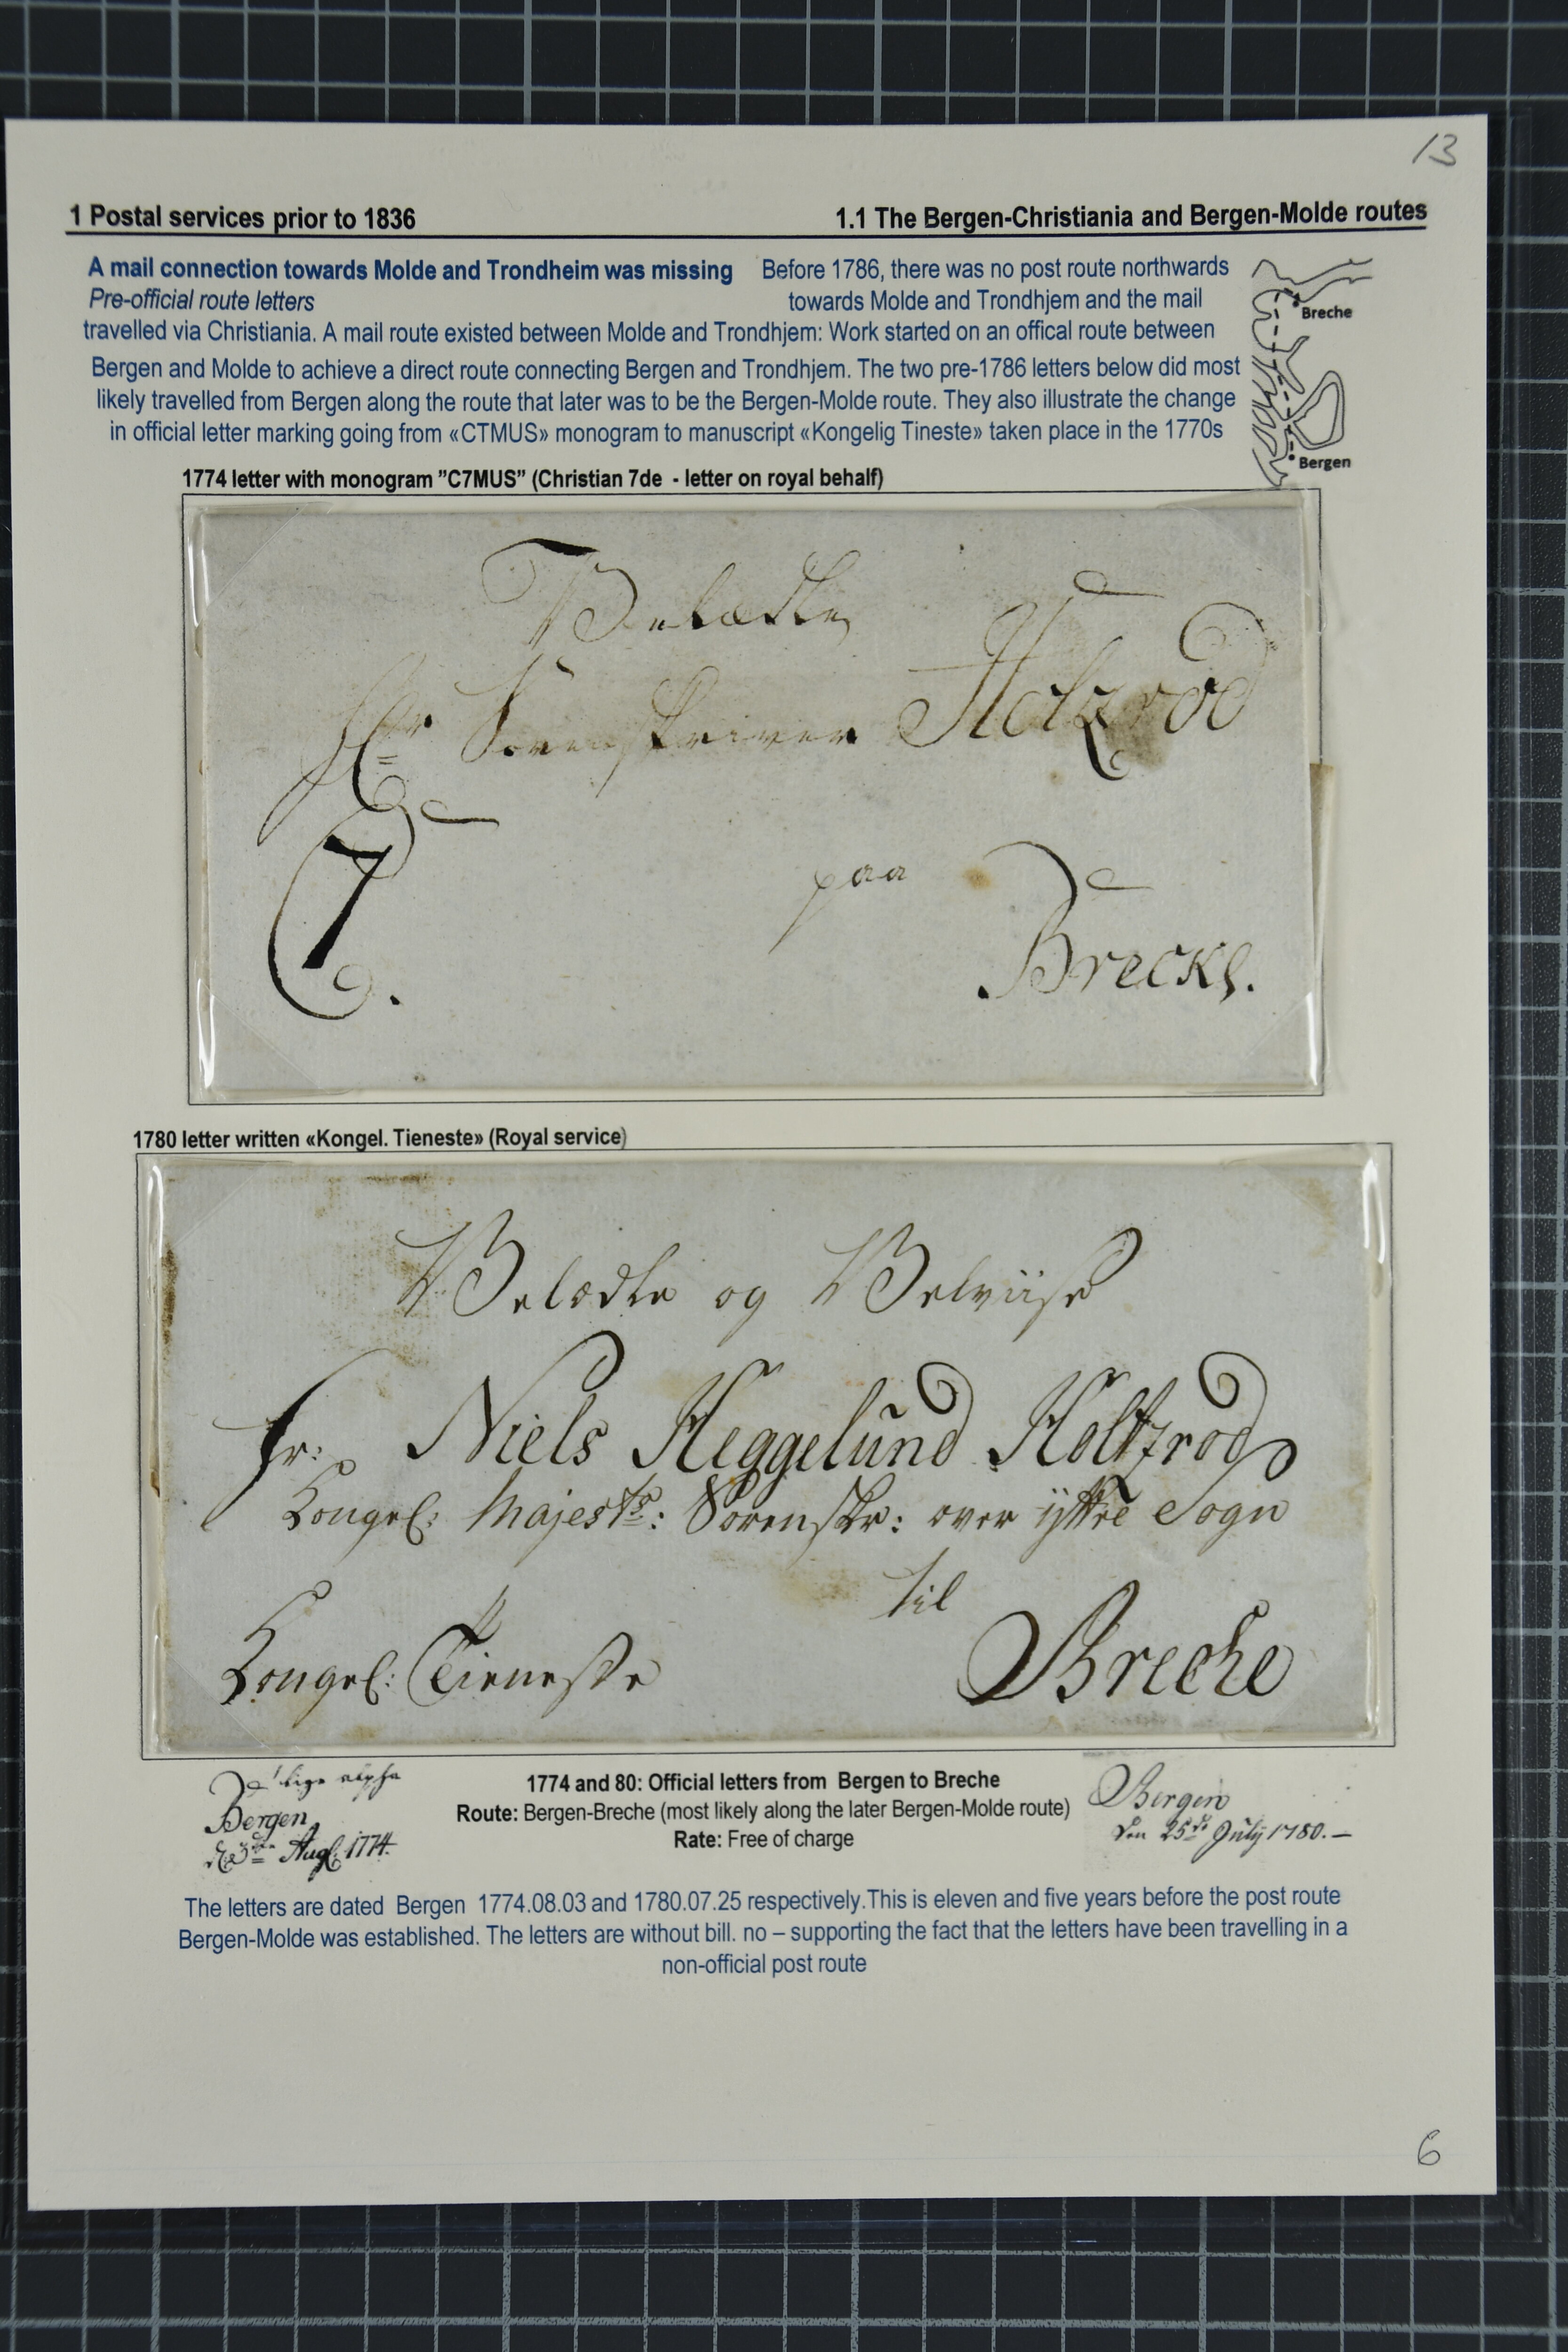 13
1 Postal services prior to 1836 1.1 The Bergen-Christiania and Bergen-Molde routes
A mail connection towards Molde and Trondheim was missing Before 1786, there was no post route northwards
Pre-official route letters towards Molde and Trondhjem and the mail
travelled via Christiania. A mail route existed between Molde and Trondhjem: Work started on an offical route between
Bergen and Molde to achieve a direct route connecting Bergen and Trondhjem. The two pre-1786 letters below did most
likely travelled from Bergen along the route that later was to be the Bergen-Molde route. They also illustrate the change
in official letter marking going from «CTMUS» monogram to manuscript «Kongelig Tineste» taken place in the 1770s
Breche
Bergen
1774 letter with monogram ”C7MUS” (Christian 7de - letter on royal behalf)
Velædle
Hr Sorenskriver Holzrod
C7
paa
Brecke.
1780 letter written «Kongel. Tieneste» (Royal service)
Velædle og Velviise
Hr: Niels Heggelund Holtzrod
Kongel: Majests: Sorenskr: over ÿttre Sogn
til
Kongel: Tieneste Breche
Bergen
d: 3die Augl: 1774.
1774 and 80: Official letters from Bergen to Breche
Route: Bergen-Breche (most likely along the later Bergen-Molde route)
Rate: Free of charge
Bergen
den 25de Julÿ 1780.—
The letters are dated Bergen 1774.08.03 and 1780.07.25 respectively.This is eleven and five years before the post route
Bergen-Molde was established. The letters are without bill. no – supporting the fact that the letters have been travelling in a
non-official post route
6